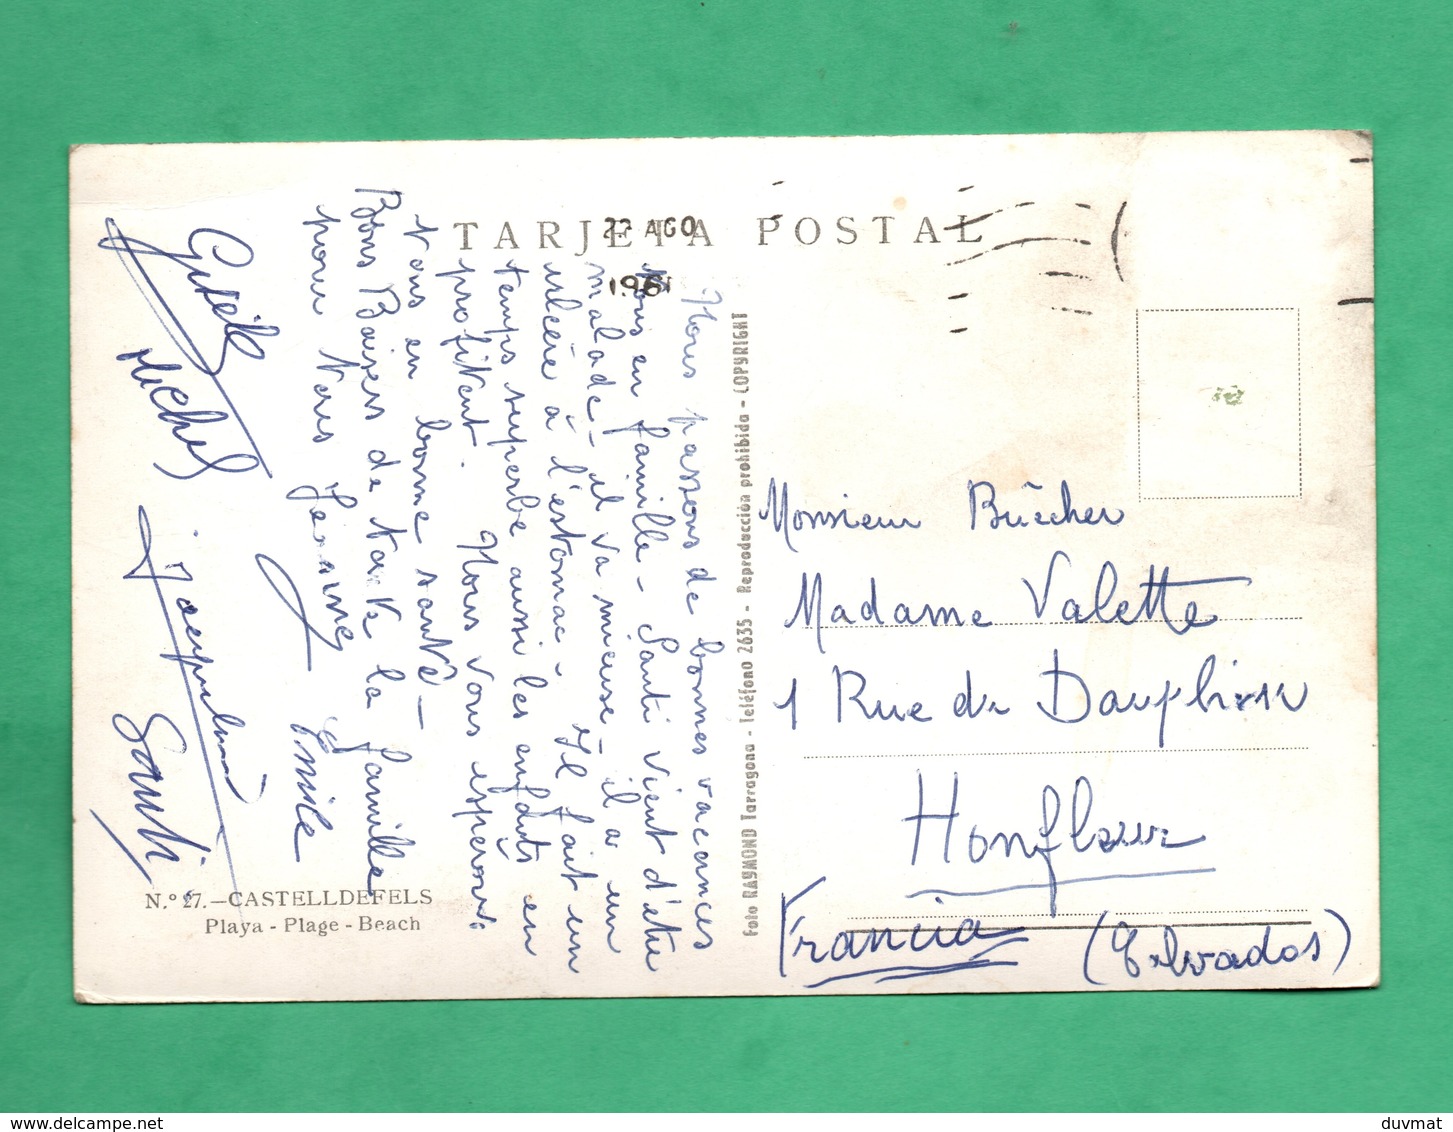 TARJETA POSTAL
22 AGO
1961
Nous passons de bonnes vacances
tous en famille - Santi vient d'être
malade - il va mieuse - il a un
ulcère à l'estomac - Il fait un
temps superbe aussi les enfants en
profitent. Nous vous espérons
tous en bonne santé -
Bons Baisers de toute la famille
pour vous Jeanne Emile
Gisèle
Michel
Jacqueline
Santi
N.º 27.-CASTELLDEFELS
Playa - Plage - Beach
Foto RAYMOND Tarragona - Teléfono 2635 - Reproducción prohibida - COPYRIGHT
Monsieur Bûcher
Madame Valette
1 Rue du Dauphin
Honfleur
Francia (Calvados)
duvmat